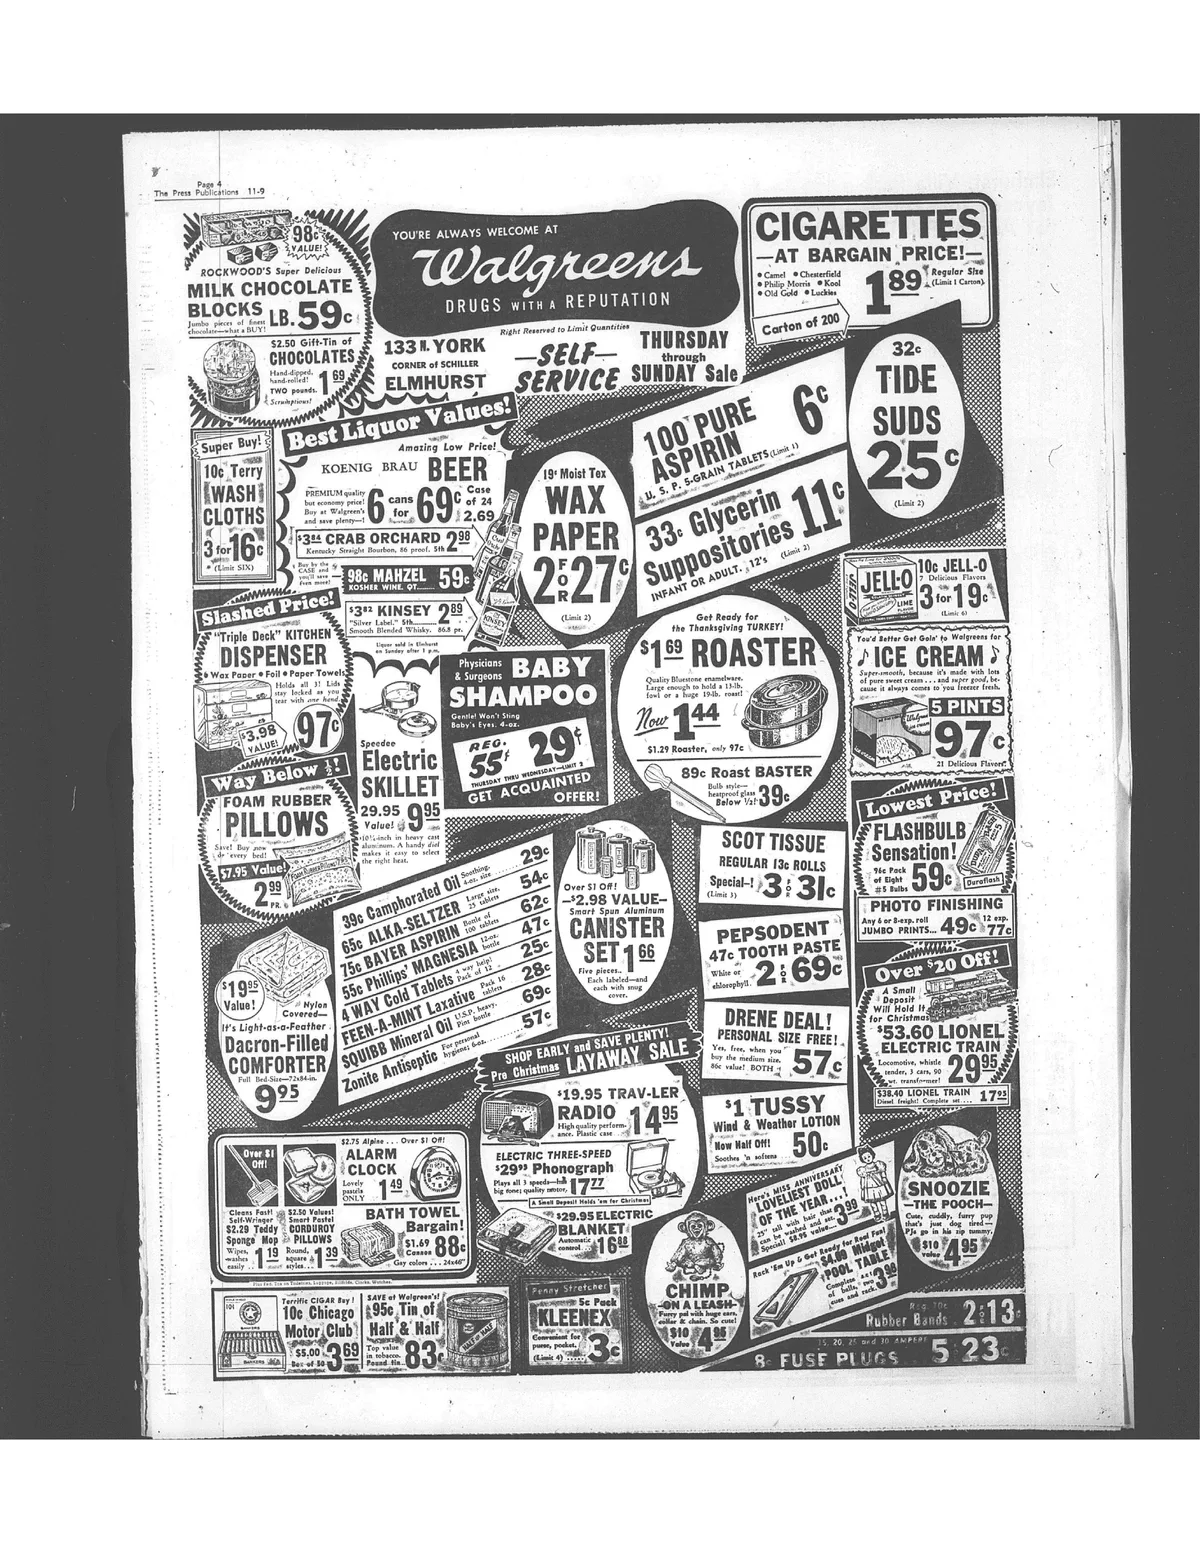 Page 4
The Press Publications 11-9
98c
VALUE!
ROCKWOOD'S Super Delicious
MILK CHOCOLATE
BLOCKS LB. 59c
Jumbo pieces of finest
chocolate—what a BUY!
$2.50 Gift-Tin of
CHOCOLATES
Hand-dipped,
hand-rolled!
TWO pounds. 1 69
Scrumptious!
YOU'RE ALWAYS WELCOME AT
Walgreens
DRUGS WITH A REPUTATION
Right Reserved to Limit Quantities
133 N. YORK
CORNER of SCHILLER
ELMHURST
—SELF—
SERVICE
THURSDAY
through
SUNDAY Sale
CIGARETTES
—AT BARGAIN PRICE!—
• Camel • Chesterfield
• Philip Morris • Kool
• Old Gold • Luckies
1 89 Regular Size
(Limit 1 Carton)
Carton of 200
32c
TIDE
SUDS
25c
(Limit 2)
100 PURE
ASPIRIN 6c
U. S. P. 5-GRAIN TABLETS (Limit 1)
33c Glycerin
Suppositories 11c
INFANT OR ADULT. 12's (Limit 2)
Best Liquor Values!
Amazing Low Price!
KOENIG BRAU BEER
PREMIUM quality
but economy price!
Buy at Walgreen's
and save plenty—!
6 cans for 69c
Case of 24 2.69
$3.84 CRAB ORCHARD 2 98
Kentucky Straight Bourbon, 86 proof. 5th
Buy by the
CASE and
you'll save
even more!
98c MAHZEL 59c
KOSHER WINE. QT.
$3.82 KINSEY 2 89
"Silver Label." 5th
Smooth Blended Whisky. 86.8 pr.
KINSEY
Liquor sold in Elmhurst
on Sunday after 1 p.m.
Super Buy!
10c Terry
WASH
CLOTHS
3 for 16c
(Limit SIX)
19c Moist Tex
WAX
PAPER
2 FOR 27c
(Limit 2)
JELL-O
LIME
10c JELL-O
7 Delicious Flavors
3 for 19c
(Limit 6)
Slashed Price!
"Triple Deck" KITCHEN
DISPENSER
• Wax Paper • Foil • Paper Towels
Holds all 3! Lids
stay locked as you
tear with one hand.
$3.98
VALUE!
97c
Speedee
Electric
SKILLET
29.95
Value! 9 95
10¼-inch in heavy cast
aluminum. A handy dial
makes it easy to select
the right heat.
Physicians
& Surgeons BABY
SHAMPOO
Gentle! Won't Sting
Baby's Eyes. 4-oz.
REG.
55c 29c
THURSDAY THRU WEDNESDAY—LIMIT 2
GET ACQUAINTED
OFFER!
Get Ready for
the Thanksgiving TURKEY!
$1 69 ROASTER
Quality Bluestone enamelware.
Large enough to hold a 13-lb.
fowl or a huge 19-lb. roast!
Now 1 44
$1.29 Roaster, only 97c
89c Roast BASTER
Bulb style—
heatproof glass
Below ½! 39c
You'd Better Get Goin' to Walgreens for
ICE CREAM
Super-smooth, because it's made with lots
of pure sweet cream . . . and super good, be-
cause it always comes to you freezer fresh.
5 PINTS
97c
21 Delicious Flavors!
Way Below ½!
FOAM RUBBER
PILLOWS
Save! Buy now
for every bed!
$7.95 Value!
2 99
PR.
39c Camphorated Oil Soothing. 4-oz. size 29c
65c ALKA-SELTZER Large size, 25 tablets 54c
75c BAYER ASPIRIN Bottle of 100 tablets 62c
55c Phillips' MAGNESIA 12-oz. bottle 47c
4 WAY Cold Tablets 4 way help! Pack of 12 25c
FEEN-A-MINT Laxative Pack 16 tablets 28c
SQUIBB Mineral Oil U.S.P. heavy. Pint bottle 69c
Zonite Antiseptic For personal hygiene; 6-oz. 57c
Over $1 Off!
—$2.98 VALUE—
Smart Spun Aluminum
CANISTER
SET 1 66
Five pieces..
Each labeled—and
each with snug
cover.
SCOT TISSUE
REGULAR 13c ROLLS
Special—! 3 FOR 31c
(Limit 3)
Lowest Price!
FLASHBULB
Sensation!
96c Pack
of Eight
#5 Bulbs 59c
Duraflash
PHOTO FINISHING
Any 6 or 8-exp. roll
JUMBO PRINTS... 49c 12 exp. 77c
PEPSODENT
47c TOOTH PASTE
White or
chlorophyll. 2 FOR 69c
DRENE DEAL!
PERSONAL SIZE FREE!
Yes, free, when you
buy the medium size.
86c value! BOTH 57c
$1 TUSSY
Wind & Weather LOTION
Now Half Off!
Soothes 'n softens 50c
Over $20 Off!
A Small
Deposit
Will Hold It
for Christmas!
$53.60 LIONEL
ELECTRIC TRAIN
Locomotive, whistle
tender, 3 cars, 90
wt. transformer! 29 95
$38.40 LIONEL TRAIN
Diesel freight! Complete set... 17 95
$19 95
Value!
Nylon
Covered—
It's Light-as-a-Feather
Dacron-Filled
COMFORTER
Full Bed-Size—72x84-in.
9 95
SHOP EARLY and SAVE PLENTY!
Pre Christmas LAYAWAY SALE
$19.95 TRAV-LER
RADIO 14 95
High quality perform-
ance. Plastic case
ELECTRIC THREE-SPEED
$29 95 Phonograph
Plays all 3 speeds—has
big tone; quality motor. 17 77
A Small Deposit Holds 'em for Christmas
$29.95 ELECTRIC
BLANKET
Automatic
control 16 88
Over $1
Off!
Cleans Fast!
Self-Wringer
$2.29 Teddy
Sponge Mop
Wipes,
washes
easily 1 19
$2.50 Values!
Smart Pastel
CORDUROY
PILLOWS
Round,
square
styles 1 39
$2.75 Alpine . . . Over $1 Off!
ALARM
CLOCK
Lovely
pastels
ONLY 1 49
BATH TOWEL
Bargain!
$1.69
Cannon 88c
Gay colors . . . 24x46"
Plus Fed. Tax on Toiletries, Luggage, Billfolds, Clocks, Watches.
Here's MISS ANNIVERSARY
LOVELIEST DOLL
OF THE YEAR...!
25" tall with hair that
can be washed and set.
Special! $8.95 value 3 99
SNOOZIE
—THE POOCH—
Cute, cuddly, furry pup
that's just dog tired—
PJs go in his zip tummy.
$10
value 4 95
CHIMP
—ON A LEASH—
Furry pal with huge ears,
collar & chain. So cute!
$10
Value 4 95
Rack 'Em Up & Get Ready for Real Fun!
$4.99 Midget
POOL TABLE
Complete set
of balls, two
cues and rack. 3 98
Terrific CIGAR Buy!
10c Chicago
Motor Club
$5.00
Box of 50 3 69
SAVE at Walgreen's!
95c Tin of
Half & Half
Top value
in tobacco.
Pound tin 83c
HALF HALF
Penny Stretcher
5c Pack
KLEENEX
Convenient for
purse, pocket.
(Limit 4) 3c
Reg. 10c
Rubber Bands 2 FOR 13c
15, 20, 25 and 30 AMPERE
8c FUSE PLUGS 5 FOR 23c